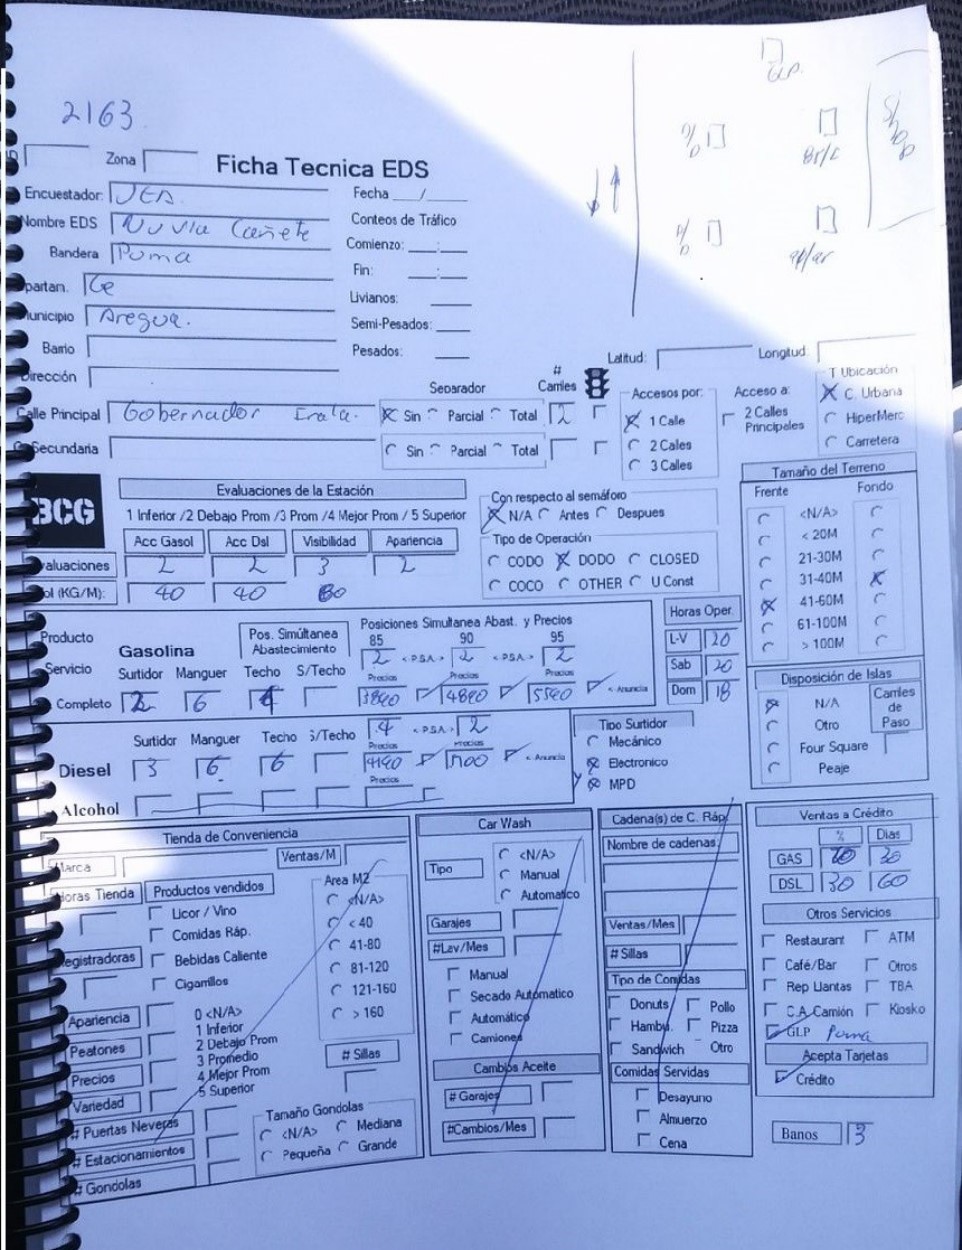 2163
GLP.
Zona
Ficha Tecnica EDS
Encuestador: JEA.
Fecha __/__
Nombre EDS Nuvia Cañete
Conteos de Tráfico
Bandera Puma
Comienzo: __:__
Fin: __:__
partam. Ce
Livianos:
unicipio Aregua.
Semi-Pesados:
Barrio
Pesados:
Latitud:
Longitud:
Dirección
Separador
# Carriles
Accesos por:
Acceso a:
T Ubicación
Calle Principal Gobernador Irala.
Sin Parcial Total 2
1 Calle
2 Calles Principales
C. Urbana
HiperMerc
Carretera
Secundaria
Sin Parcial Total
2 Calles
3 Calles
BCG
Evaluaciones de la Estación
1 Inferior /2 Debajo Prom /3 Prom /4 Mejor Prom / 5 Superior
Acc Gasol Acc Dsl Visibilidad Apariencia
valuaciones 2 2 3 2
ol (KG/M): 40 40 80
Con respecto al semáforo
N/A Antes Despues
Tipo de Operación
CODO DODO CLOSED
COCO OTHER U Const
Tamaño del Terreno
Frente Fondo
<N/A>
< 20M
21-30M
31-40M
41-60M
61-100M
> 100M
Producto
Servicio
Gasolina
Pos. Simúltanea Abastecimiento
Posiciones Simultanea Abast. y Precios
85 90 95
2 <PSA> 2 <PSA> 2
Surtidor Manguer Techo S/Techo
Precios Precios Precios
Completo 2 6 4 3840 4890 5540 < Anuncia
Horas Oper.
L-V 20
Sab 20
Dom 18
Disposición de Islas
N/A
Otro
Four Square
Peaje
Carriles de Paso
Diesel
Surtidor Manguer Techo S/Techo
4 <PSA> 2
Precios Precios
3 6 6 4190 < Anuncia
Precios
Alcohol
Tipo Surtidor
Mecánico
Electronico
MPD
Tienda de Conveniencia
Marca
Ventas/M
Horas Tienda
Productos vendidos
Licor / Vino
Comidas Ráp.
Bebidas Caliente
Cigarrillos
Registradoras
Area M2
<N/A>
< 40
41-80
81-120
121-160
> 160
Apariencia
Peatones
Precios
Variedad
0 <N/A>
1 Inferior
2 Debajo Prom
3 Promedio
4 Mejor Prom
5 Superior
# Sillas
# Puertas Neveras
# Estacionamientos
# Gondolas
Tamaño Gondolas
<N/A> Mediana
Pequeña Grande
Car Wash
Tipo
<N/A>
Manual
Automatico
Garajes
#Lav/Mes
Manual
Secado Automatico
Automático
Camiones
Cambios Aceite
# Garajes
#Cambios/Mes
Cadena(s) de C. Ráp.
Nombre de cadenas:
Ventas/Mes
# Sillas
Tipo de Comidas
Donuts Pollo
Hambu. Pizza
Sandwich Otro
Comidas Servidas
Desayuno
Almuerzo
Cena
Ventas a Crédito
% Dias
GAS 70 30
DSL 30 60
Otros Servicios
Restaurant ATM
Café/Bar Otros
Rep Llantas TBA
C.A.Camión Kiosko
GLP Puma
Acepta Tarjetas
Crédito
Banos 3